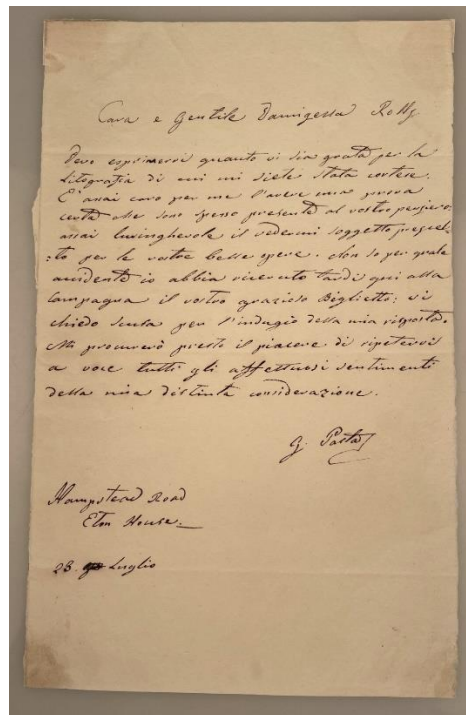 Cara e Gentile Damigella
Devo esprimervi quanto vi sia grata per la
Litografia di cui mi siete stata cortese.
E' assai caro per me l'avere una prova
certa che sono spesso presente al vostro pensiero,
assai lusinghevole il vedermi soggetto prescel=
=to per le vostre belle opere. Non so per quale
accidente io abbia ricevuto tardi qui alla
Campagna il vostro grazioso Biglietto; vi
chiedo scusa per l'indugio della mia risposta.
Mi procurerò presto il piacere di ripetervi
a voce tutti gli affettuosi sentimenti
della mia distinta considerazione.
G. Pasta
Hampstead Road
Elm House.
23 Luglio